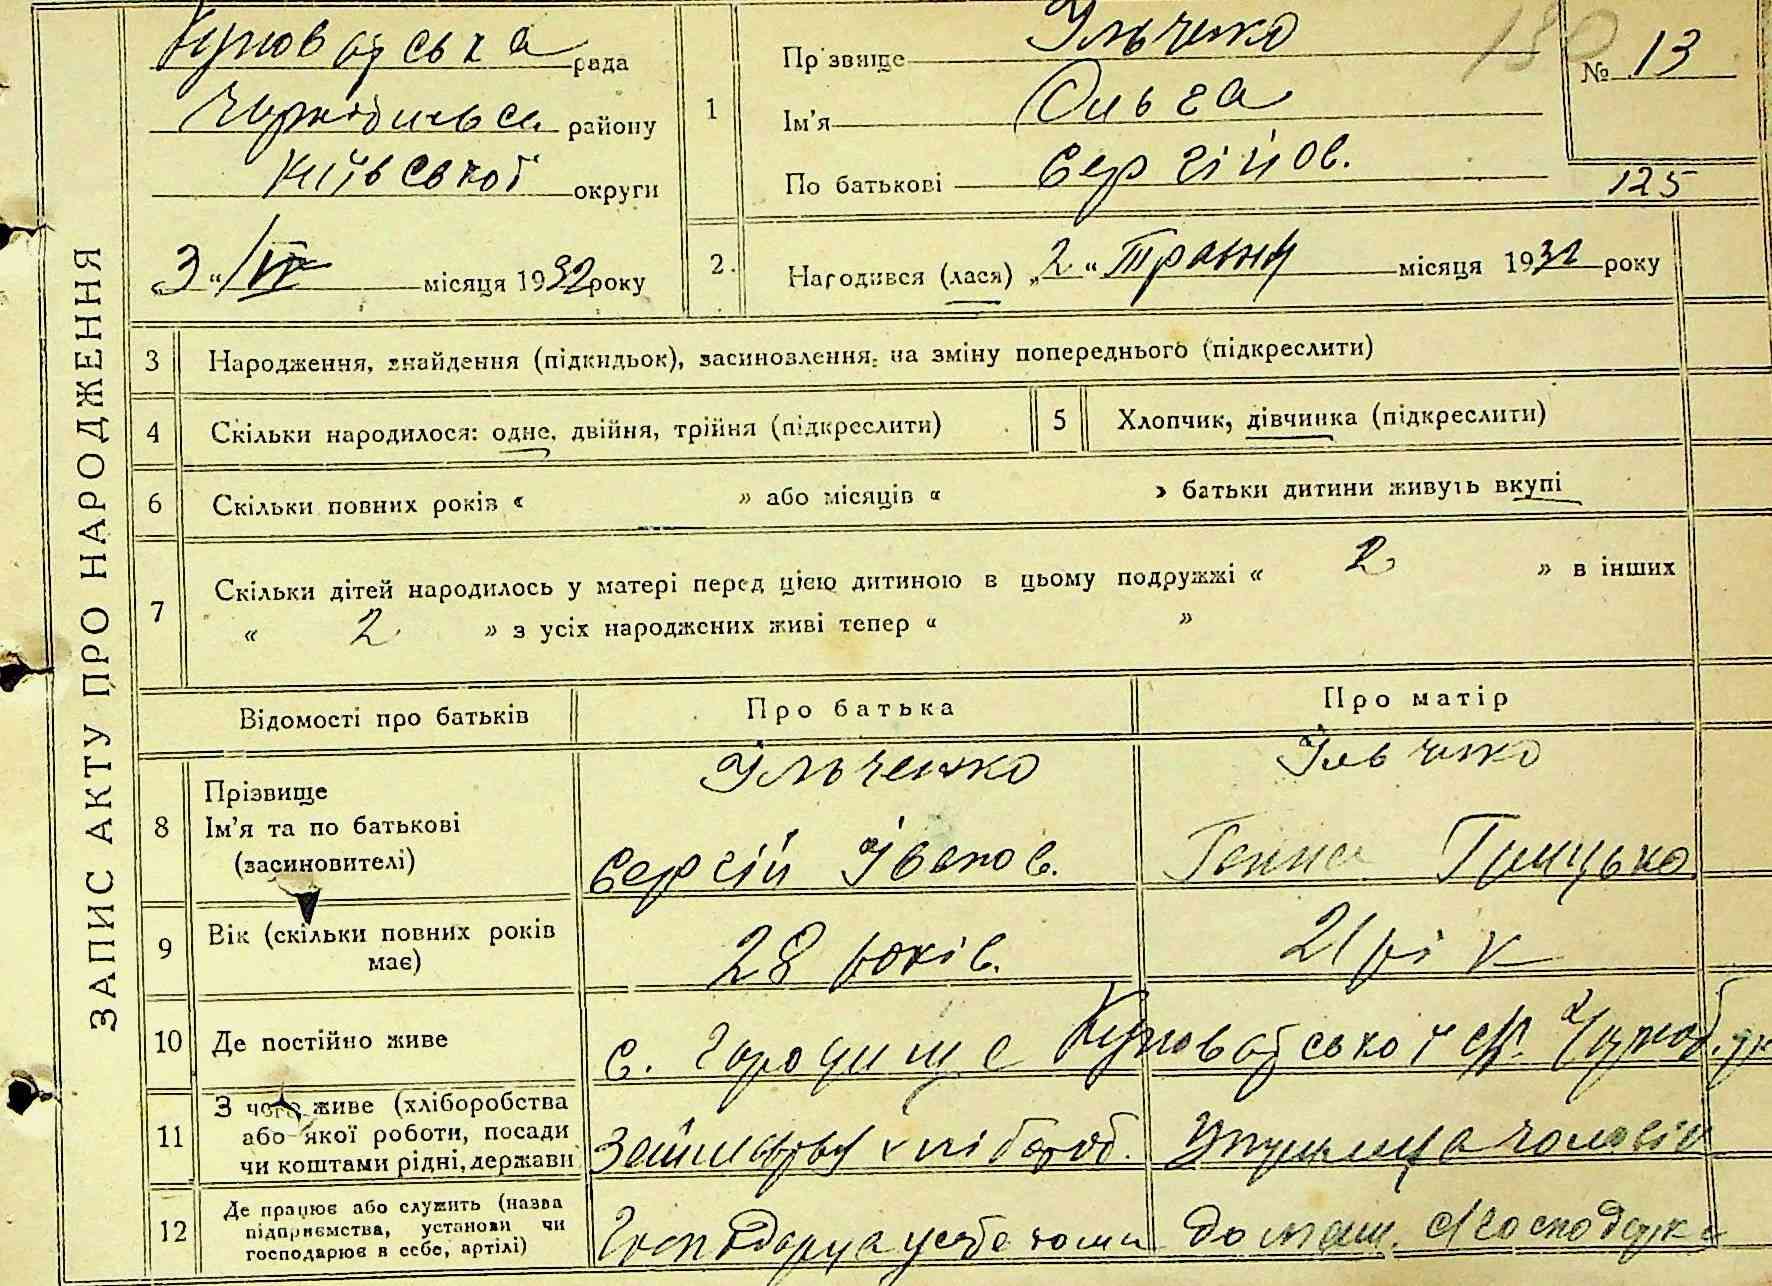 ЗАПИС АКТУ ПРО НАРОДЖЕННЯ
Куповатська рада
Чорнобильськ. району
Київської округи
„3“ / VI місяця 1932 року
1
Прізвище Ільченко
Ім'я Ольга
По батькові Сергійов.
№ 13
180
125
2. Народився (лася) „2“ Травня місяця 1932 року
3 Народження, знайдення (підкидьок), засиновлення, на зміну попереднього (підкреслити)
4 Скільки народилося: одне, двійня, трійня (підкреслити)
5 Хлопчик, дівчинка (підкреслити)
6 Скільки повних років « » або місяців « » батьки дитини живуть вкупі
7 Скільки дітей народилось у матері перед цією дитиною в цьому подружжі « 2 » в інших
« 2 » з усіх народжених живі тепер « »
Відомості про батьків Про батька Про матір
8 Прізвище
Ім'я та по батькові
(засиновителі)
Ільченко
Сергій Іванов.
Ільченко
Ганна Грицько
9 Вік (скільки повних років
має)
28 років.
21 рік
10 Де постійно живе
с. Городище Куповатської с/р. Чорноб. р-н
11 З чого живе (хліборобства
або якої роботи, посади
чи коштами рідні, держави
хлібороб.
чоловік
12 Де працює або служить (назва
підприємства, установи чи
господарює в себе, артілі)
Господарує у себе
домаш. господарка